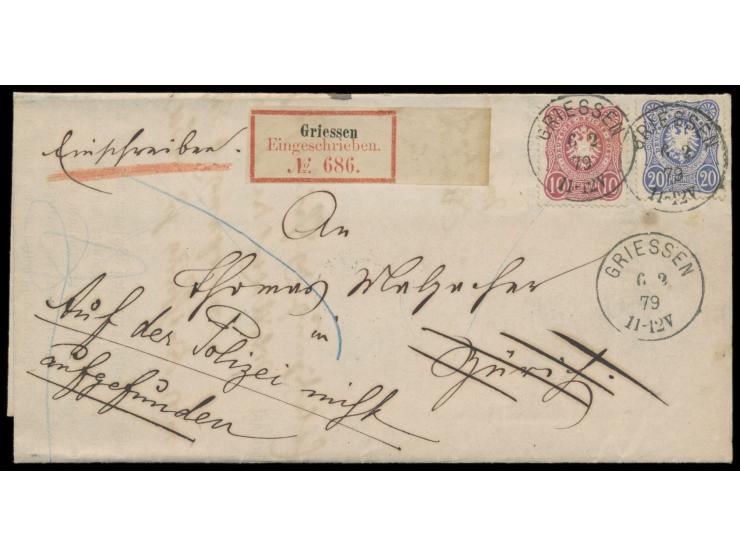 Einschreiben.
Griessen
Eingeschrieben.
№ 686.
GRIESSEN
6 2
79
11-12V
10 10
GRIESSEN
6 2
79
11-12V
20 20
An
Thomas Malzacher
in
Zürich.
GRIESSEN
6 2
79
11-12V
Auf der Polizei nicht
aufgefunden